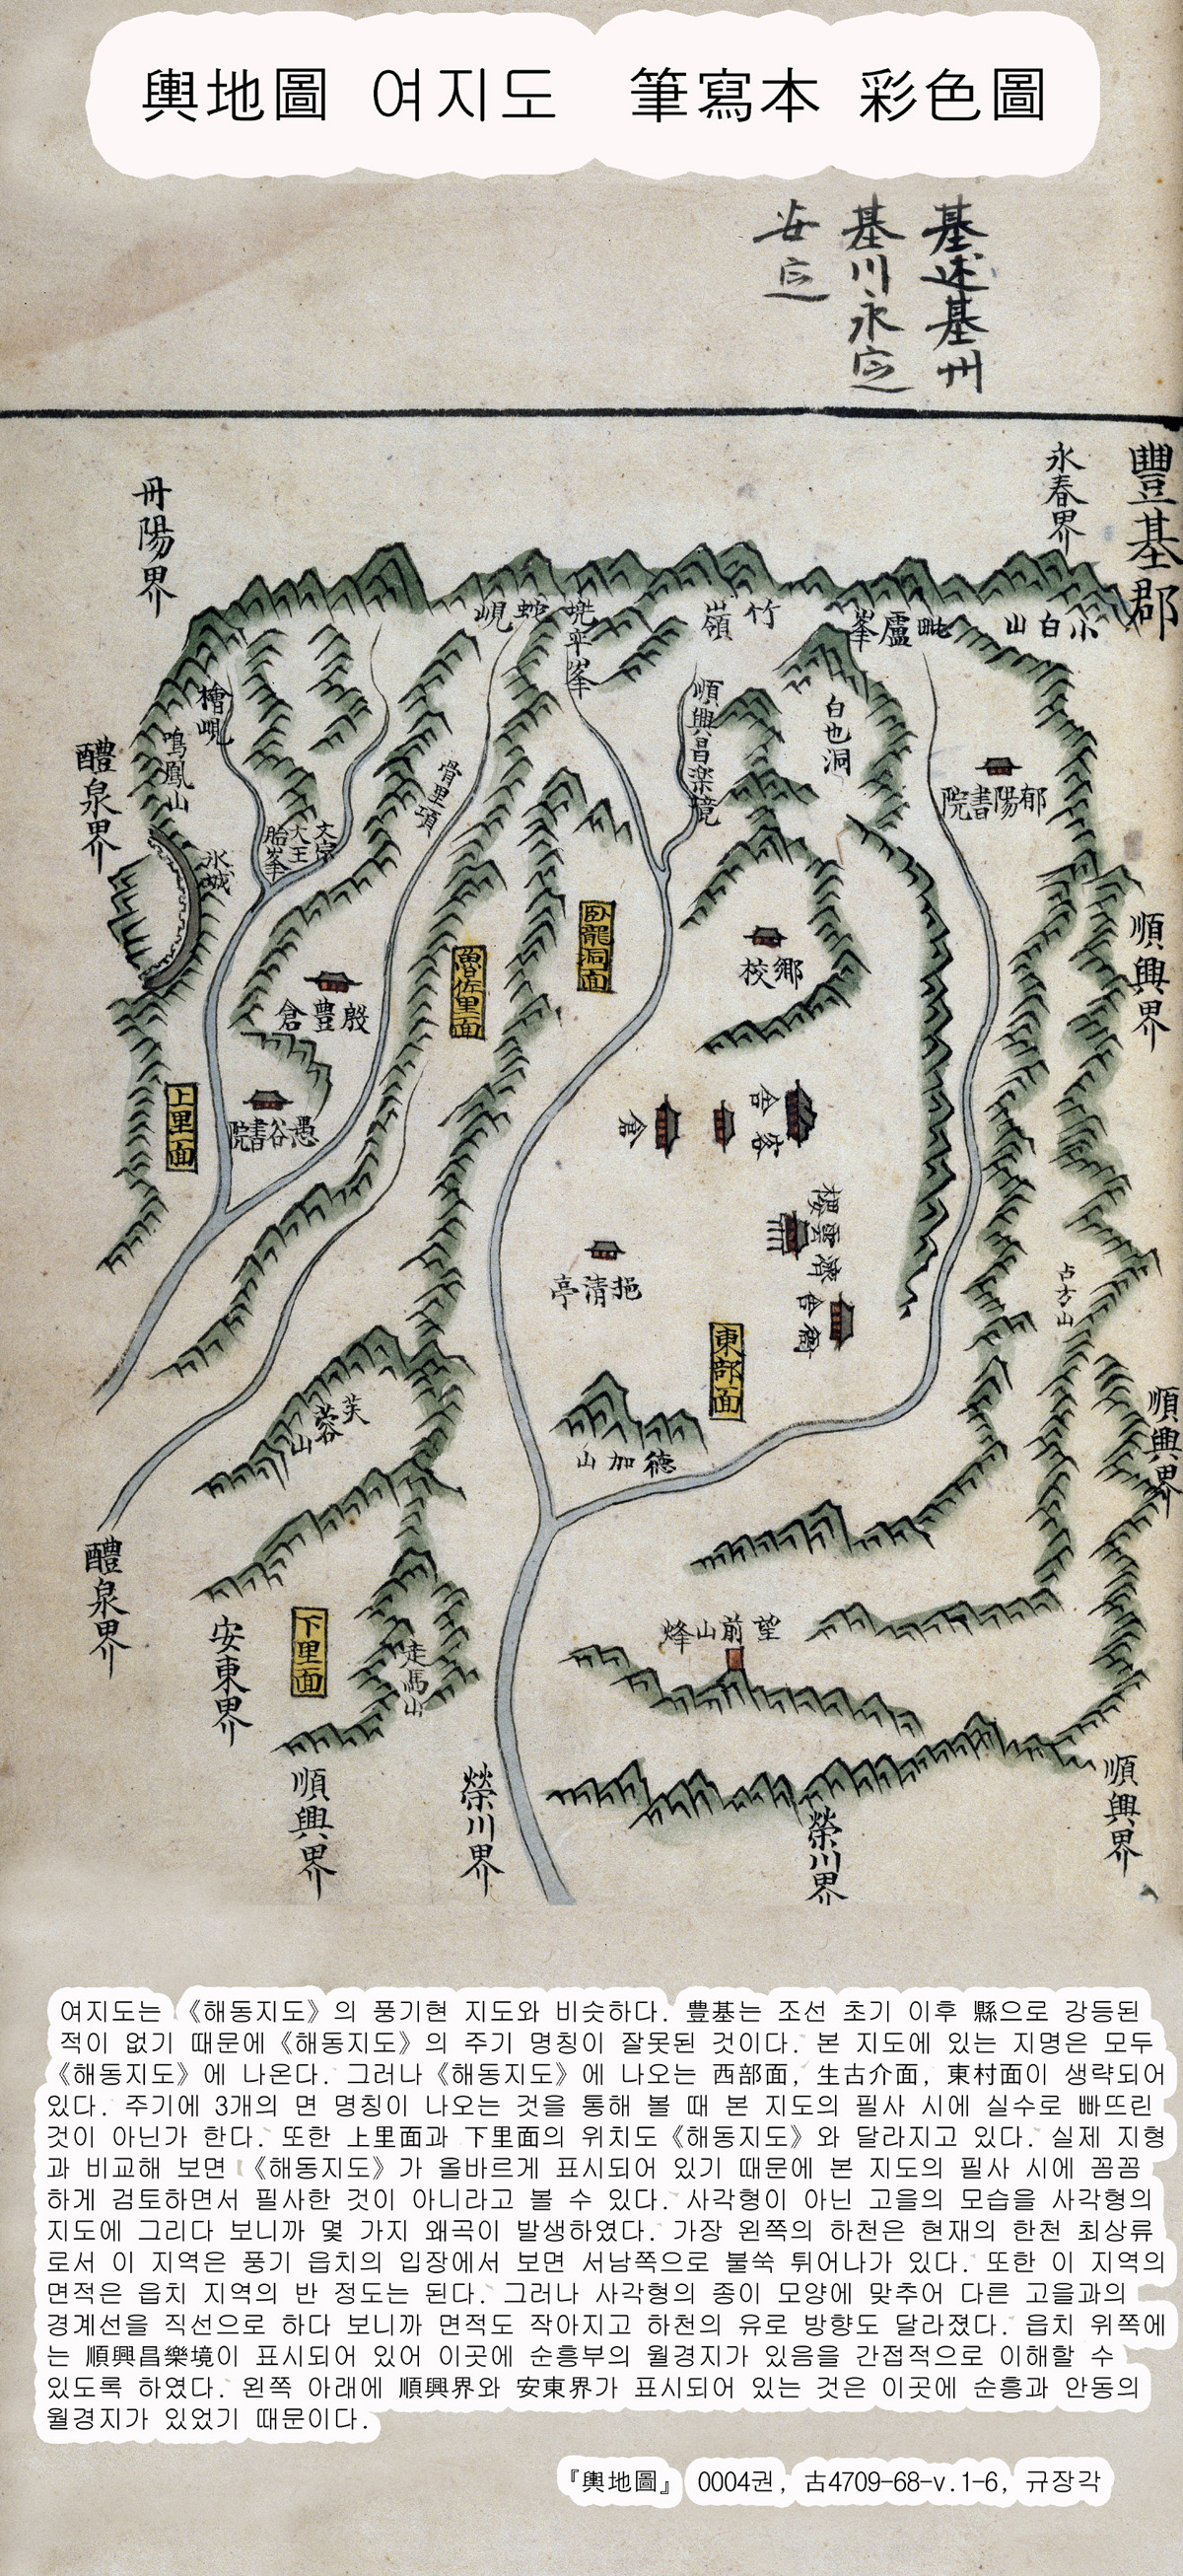 輿地圖 여지도 筆寫本 彩色圖
基述基州
基川永定
安定
豐基郡
永春界
丹陽界
小白山
毗盧峯
竹嶺
兜率峯
蛇峴
檜峴
鳴鳳山
醴泉界
順興昌楽境
白也洞
郁陽書院
骨里項
文宗
大王
胎峯
氷城
順興界
臥龍洞面
魯佐里面
鄕校
殷豊倉
上里面
愚谷書院
客舍
倉
濟雲樓
衙舍
挹清亭
占方山
東部面
順興界
芙蓉山
德加山
醴泉界
安東界
下里面
走馬山
望前山烽
順興界
榮川界
榮川界
順興界
여지도는 《해동지도》의 풍기현 지도와 비슷하다. 豊基는 조선 초기 이후 縣으로 강등된
적이 없기 때문에《해동지도》의 주기 명칭이 잘못된 것이다. 본 지도에 있는 지명은 모두
《해동지도》에 나온다. 그러나《해동지도》에 나오는 西部面, 生古介面, 東村面이 생략되어
있다. 주기에 3개의 면 명칭이 나오는 것을 통해 볼 때 본 지도의 필사 시에 실수로 빠뜨린
것이 아닌가 한다. 또한 上里面과 下里面의 위치도《해동지도》와 달라지고 있다. 실제 지형
과 비교해 보면 《해동지도》가 올바르게 표시되어 있기 때문에 본 지도의 필사 시에 꼼꼼
하게 검토하면서 필사한 것이 아니라고 볼 수 있다. 사각형이 아닌 고을의 모습을 사각형의
지도에 그리다 보니까 몇 가지 왜곡이 발생하였다. 가장 왼쪽의 하천은 현재의 한천 최상류
로서 이 지역은 풍기 읍치의 입장에서 보면 서남쪽으로 불쑥 튀어나가 있다. 또한 이 지역의
면적은 읍치 지역의 반 정도는 된다. 그러나 사각형의 종이 모양에 맞추어 다른 고을과의
경계선을 직선으로 하다 보니까 면적도 작아지고 하천의 유로 방향도 달라졌다. 읍치 위쪽에
는 順興昌樂境이 표시되어 있어 이곳에 순흥부의 월경지가 있음을 간접적으로 이해할 수
있도록 하였다. 왼쪽 아래에 順興界와 安東界가 표시되어 있는 것은 이곳에 순흥과 안동의
월경지가 있었기 때문이다.
『輿地圖』 0004권, 古4709-68-v.1-6, 규장각